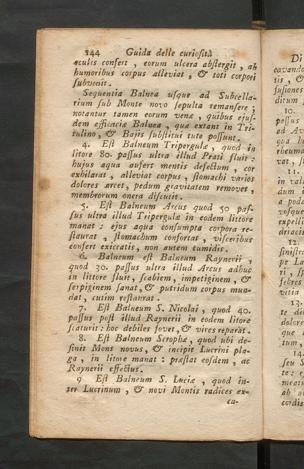 144 Guida delle curiosità
oculis confert, eorum ulcera abstergit, ab
humoribus corpus alleviat, & toti corpori
subvenit.
Sequentia Balnea usque ad Subcella-
rium sub Monte novo sepulta remansere;
notantur tamen eorum venæ, quibus ejus-
dem efficaciæ Balnea, quæ extant in Tri-
tulino, & Bajis substitui tute possunt.
4. Est Balneum Tripergulæ, quod in
litore 80. passus ultra illud Prati fluit:
hujus aqua aufert mentis defectum, cor
exhilarat, alleviat corpus, stomachi varios
dolores arcet, pedum gravitatem removet,
membrorum onera discutit.
5. Est Balneum Arcus quod 50 pas-
sus ultra illud Tripergulæ in eodem littore
manat: ejus aqua consumpta corpora re-
staurat, stomachum confortat, visceribus
confert exiccatis, non autem tumidis.
6. Balneum est Balneum Raynerii,
quod 30. passus ultra illud Arcus adhuc
in littore fluit, scabiem, impetiginem, &
serpiginem sanat, & putridum corpus mun-
dat, cutim restaurat.
7. Est Balneum S. Nicolai, quod 40.
passus post illud Raynerii in eodem litore
scaturit: hoc debiles fovet, & vires reparat.
8. Est Balneum Scropha, quod ubi de-
sinit Mons novus, & incipit Lucrini pla-
ga, in litore manat: præstat eosdem, ac
Raynerii effectus.
9 Est Balneum S. Luciæ, quod in-
ter Lucrinum, & novi Montis radices ex-
ca-